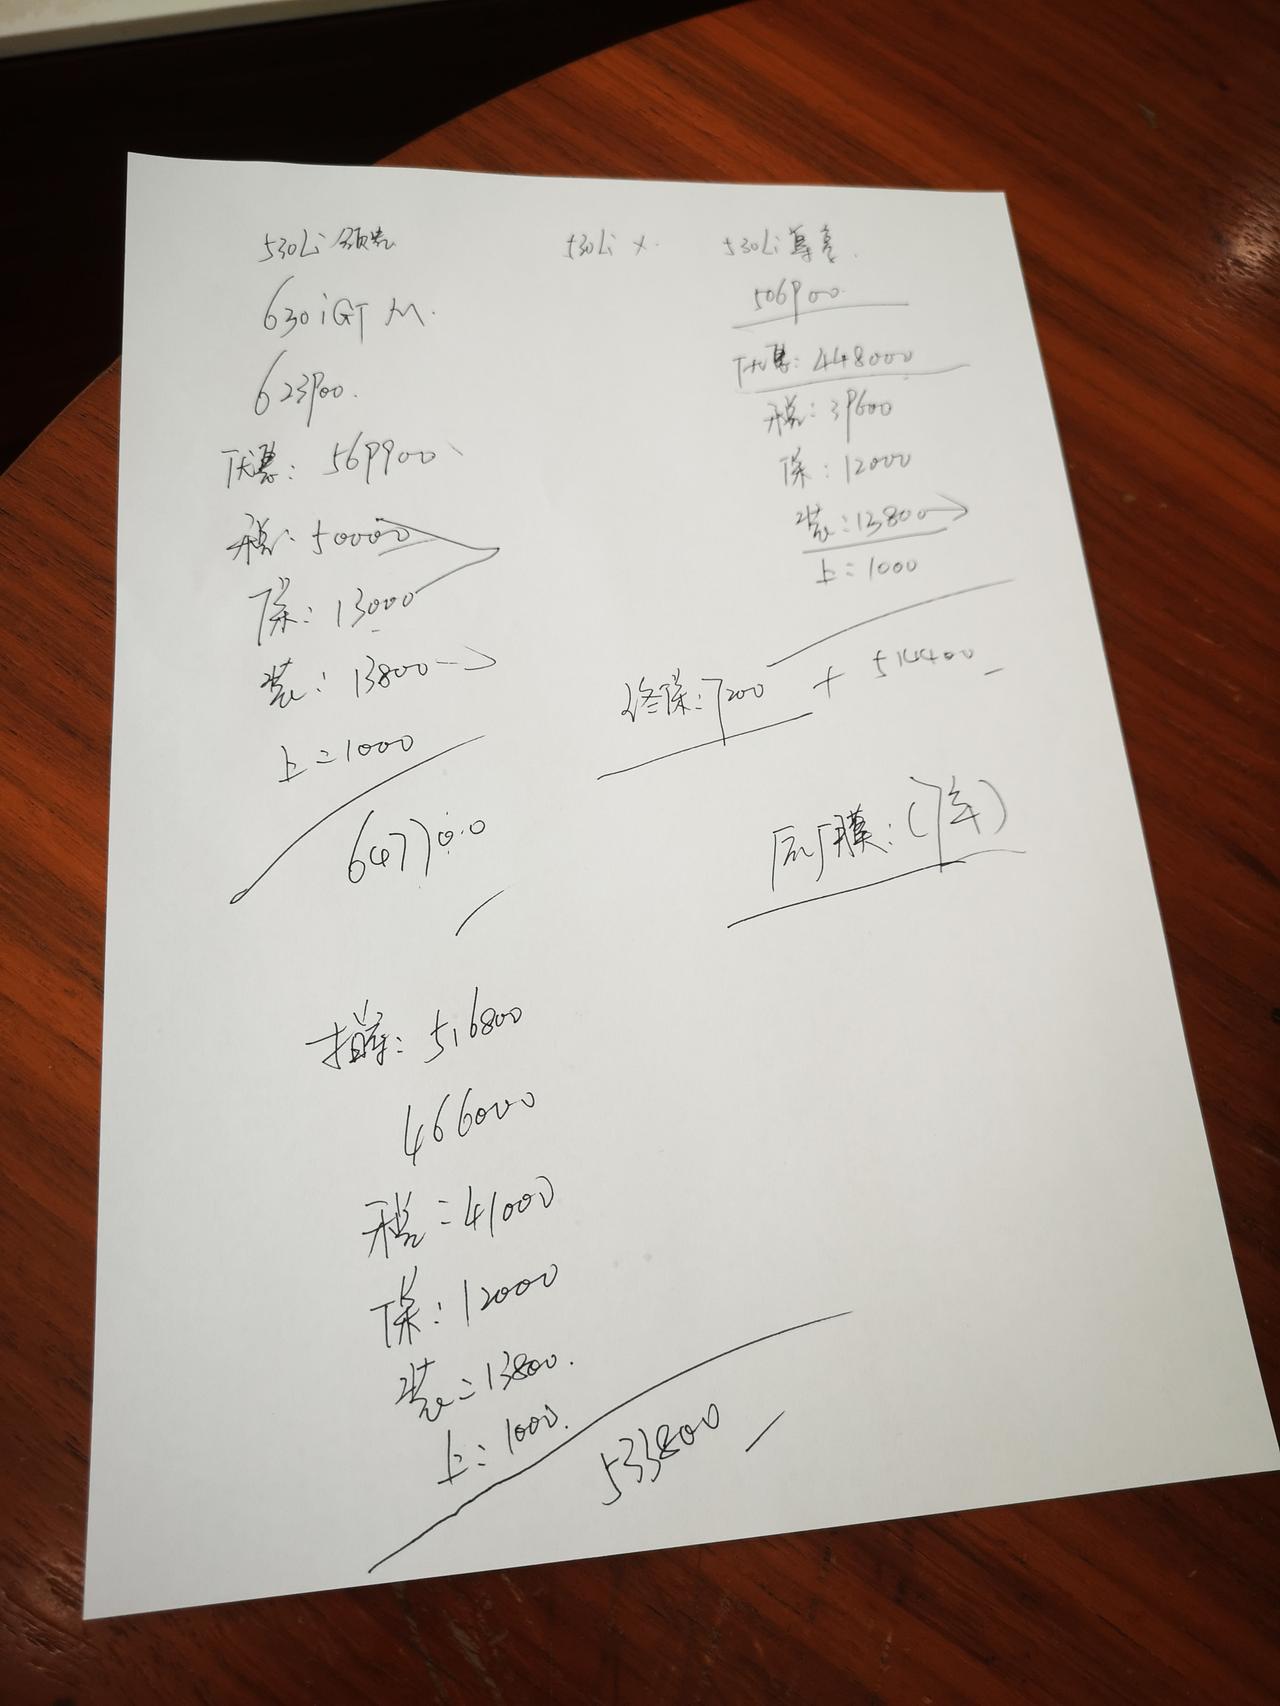 530Li 领先
630i GT M.
623900.
优惠: 569900
税: 50000
保: 13000
装: 13800
上: 1000
647700
530Li X.
530Li 尊享.
506900
优惠: 448000
税: 39600
保: 12000
装: 13800
上: 1000
终保: 7200 + 514400
膜: (7年)
指导: 516800
466000
税: 41000
保: 12000
装: 13800.
上: 1000.
533800